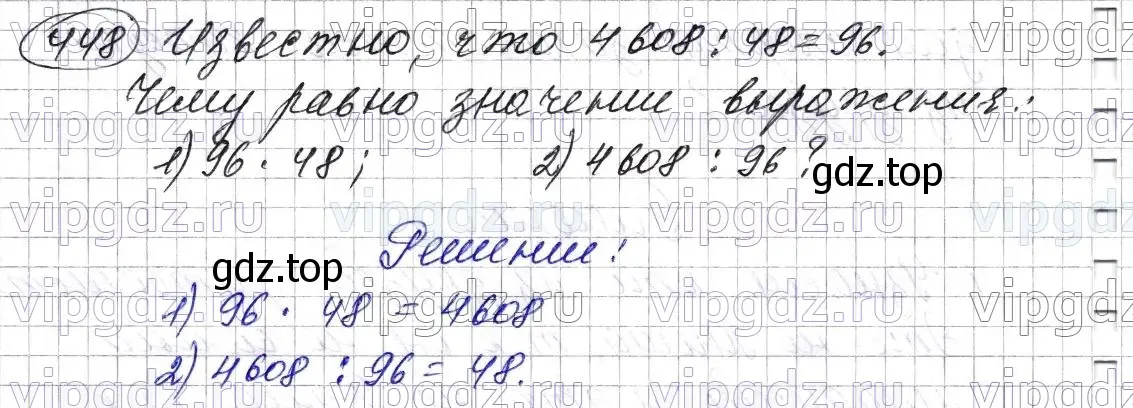 448 Известно, что 4608 : 48 = 96.
Чему равно значение выражения:
1) 96 · 48; 2) 4608 : 96?
gdz.top
Решение:
gdz.top
1) 96 · 48 = 4608
2) 4608 : 96 = 48.
vipgdz.ru